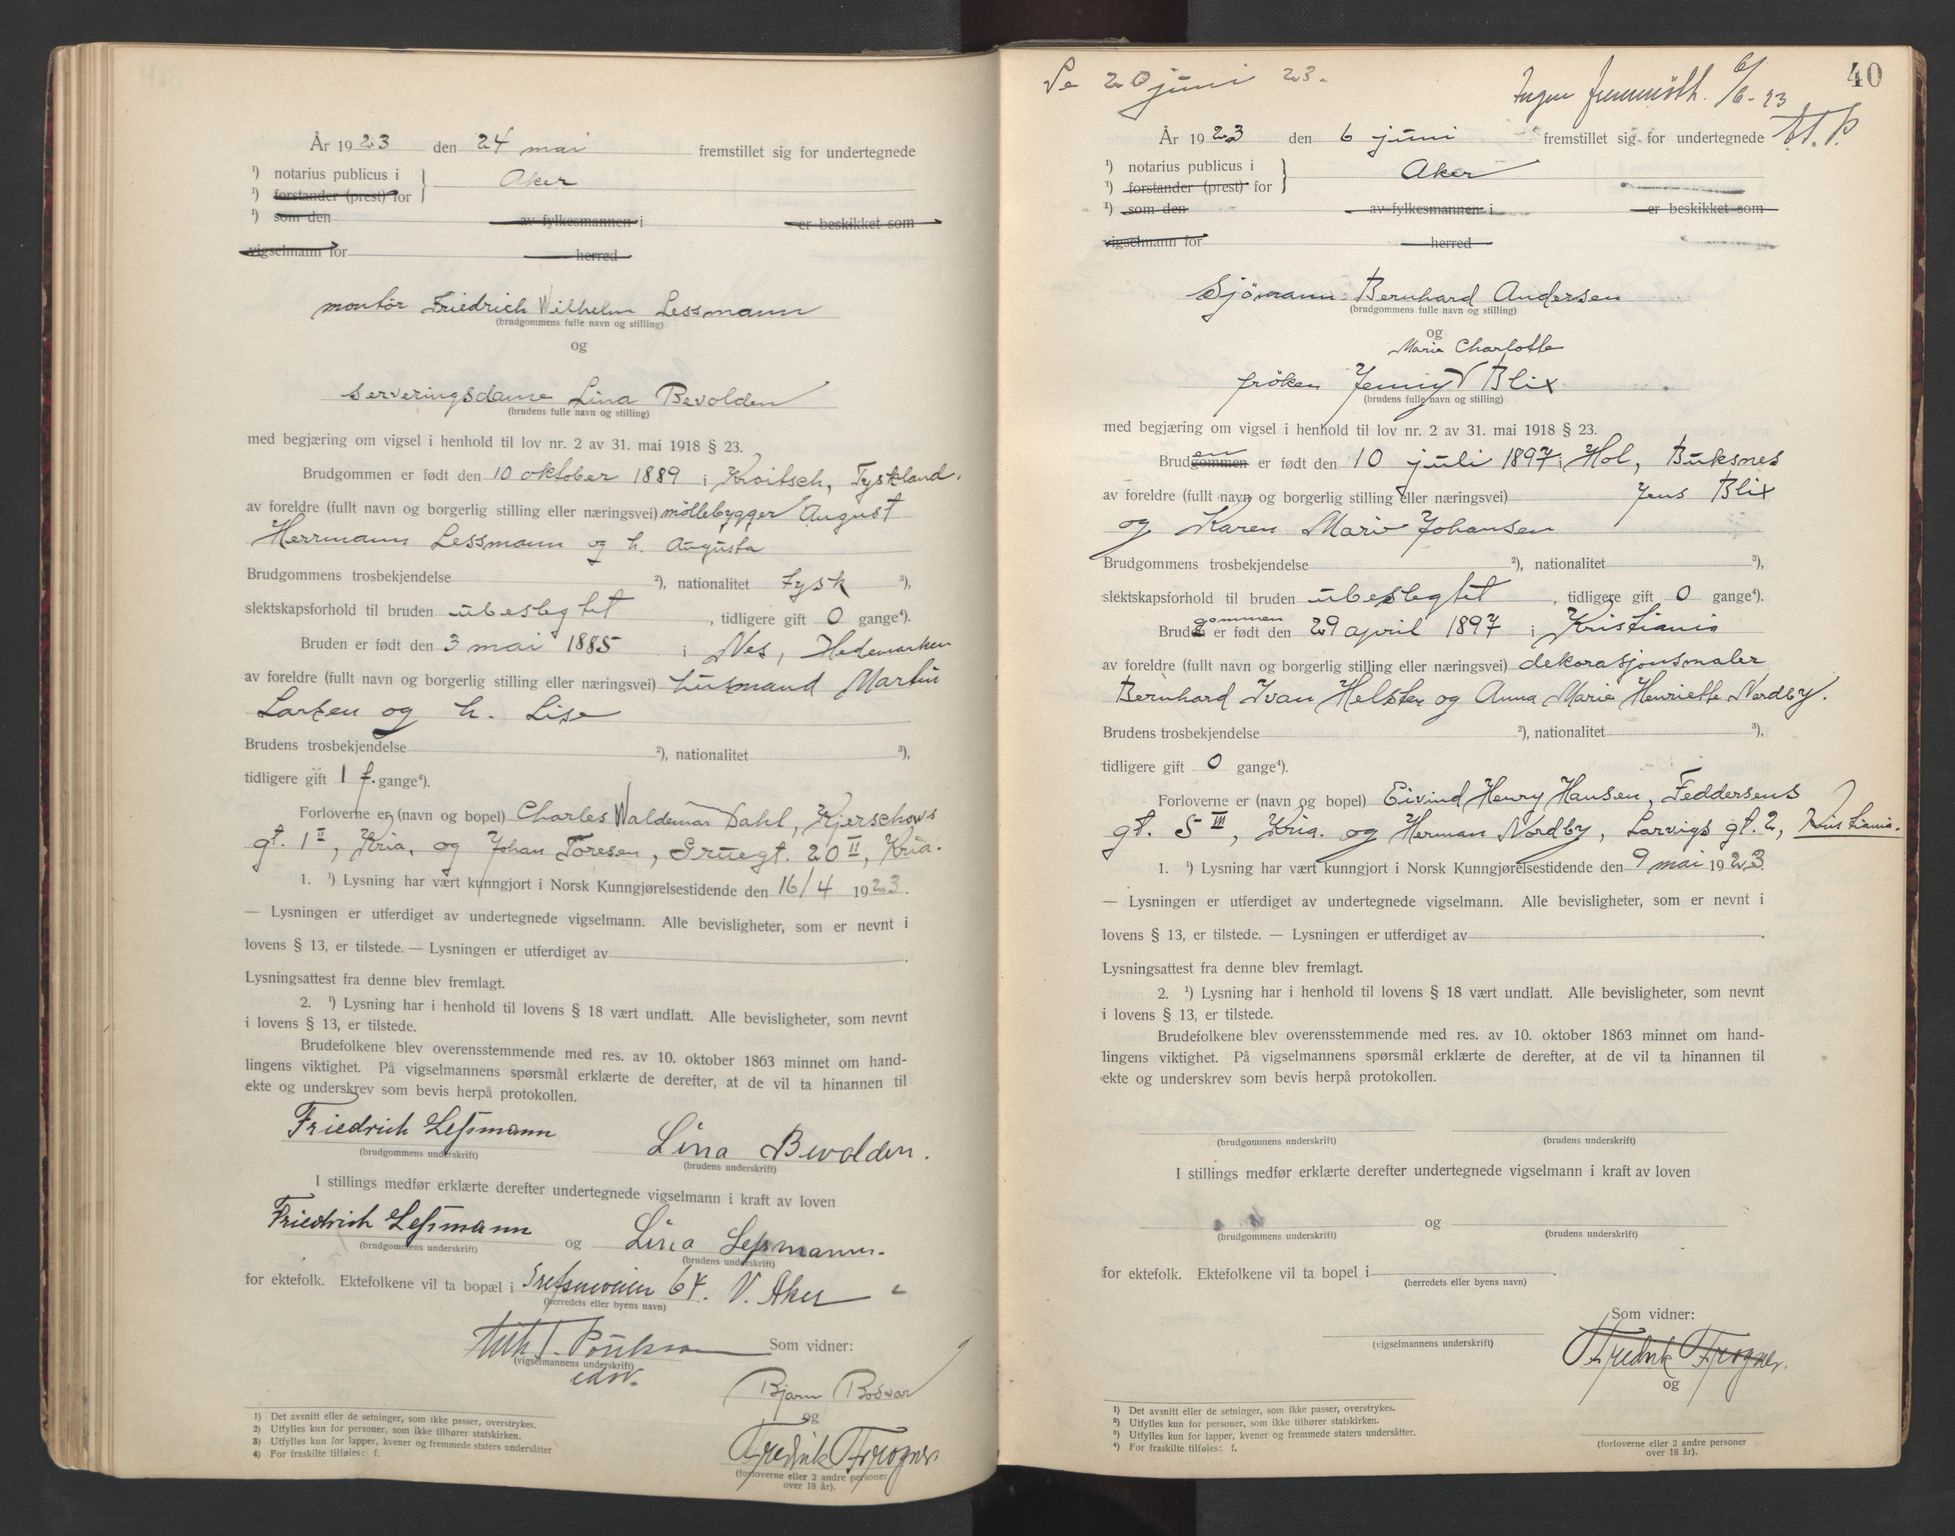 År 1923 den 24 mai fremstillet sig for undertegnede
¹) notarius publicus i } Aker
¹) forstander (prest) for
¹) som den av fylkesmannen i er beskikket som
vigselmann for herred
montör Friedrich Wilhelm Lessmann
(brudgommens fulle navn og stilling)
og
serveringsdame Lina Bevolden
(brudens fulle navn og stilling)
med begjæring om vigsel i henhold til lov nr. 2 av 31. mai 1918 § 23.
Brudgommen er født den 10 oktober 1889 i Kroitsch, Tyskland.
av foreldre (fullt navn og borgerlig stilling eller næringsvei) möllebygger August
Herrmann Lessmann og h. Augusta
Brudgommens trosbekjendelse ²), nationalitet tysk ³),
slektskapsforhold til bruden ubeslegtet, tidligere gift 0 gange⁴).
Bruden er født den 3 mai 1885 i Nes, Hedemarken
av foreldre (fullt navn og borgerlig stilling eller næringsvei) husmand Martin
Larsen og h. Lise
Brudens trosbekjendelse ²), nationalitet ³),
tidligere gift 1 f. gange⁴).
Forloverne er (navn og bopel) Charles Waldemar Dahl, Kjerschows
gt. 1 II, Kria, og Johan Toresen, Gruegt. 20 II, Kria.
1. ¹) Lysning har vært kunngjort i Norsk Kunngjørelsestidende den 16/4 1923.
— Lysningen er utferdiget av undertegnede vigselmann. Alle bevisligheter, som er nevnt i
lovens § 13, er tilstede. — Lysningen er utferdiget av
Lysningsattest fra denne blev fremlagt.
2. ¹) Lysning har i henhold til lovens § 18 vært undlatt. Alle bevisligheter, som nevnt
i lovens § 13, er tilstede.
Brudefolkene blev overensstemmende med res. av 10. oktober 1863 minnet om hand-
lingens viktighet. På vigselmannens spørsmål erklærte de derefter, at de vil ta hinannen til
ekte og underskrev som bevis herpå protokollen.
Friedrich Leßmann
(brudgommens underskrift)
Lina Bevolden.
(brudens underskrift)
I stillings medfør erklærte derefter undertegnede vigselmann i kraft av loven
Friedrich Leßmann og Lina Leßmann.
(brudgommens underskrift) (brudens underskrift)
for ektefolk. Ektefolkene vil ta bopæl i Grefsenveien 64. V. Aker
(herredets eller byens navn)
Som vidner:
(vigselmannens underskrift)
Bjarn
og
Fredrik Frogner.
(forloverne eller 2 andre personer
over 18 år).
1) Det avsnitt eller de setninger, som ikke passer, overstrykes.
2) Utfylles kun for personer, som ikke tilhører statskirken.
3) Utfylles kun for lapper, kvener og fremmede staters undersåtter
4) For fraskilte tilføies: f.
Se 20 juni 23.
Ingen fremmött. 6/6-23
40
År 1923 den 6 juni fremstillet sig for undertegnede
¹) notarius publicus i } Aker
¹) forstander (prest) for
¹) som den av fylkesmannen i er beskikket som
vigselmann for herred
Sjömann Bernhard Andersen
(brudgommens fulle navn og stilling)
og
Marie Charlotte
fröken Jenny V Blix
(brudens fulle navn og stilling)
med begjæring om vigsel i henhold til lov nr. 2 av 31. mai 1918 § 23.
en
Brudgommen er født den 10 juli 1897 i Hol, Buksnes
av foreldre (fullt navn og borgerlig stilling eller næringsvei) Jens Blix
og Karen Marie Johansen
Brudgommens trosbekjendelse ²), nationalitet ³),
slektskapsforhold til bruden ubeslegtet, tidligere gift 0 gange⁴).
gommen
Brud er født den 29 april 1897 i Kristiania
av foreldre (fullt navn og borgerlig stilling eller næringsvei) dekorasjonsmaler
Bernhard Ivan Helsten og Anna Marie Henriette Nordby.
Brudens trosbekjendelse ²), nationalitet ³),
tidligere gift 0 gange⁴).
Forloverne er (navn og bopel) Eivind Henry Hansen, Feddersens
gt. 5 III, Kria. og Herman Nordby, Larvigs gt. 2, Kristiania.
1. ¹) Lysning har vært kunngjort i Norsk Kunngjørelsestidende den 9 mai 1923
— Lysningen er utferdiget av undertegnede vigselmann. Alle bevisligheter, som er nevnt i
lovens § 13, er tilstede. — Lysningen er utferdiget av
Lysningsattest fra denne blev fremlagt.
2. ¹) Lysning har i henhold til lovens § 18 vært undlatt. Alle bevisligheter, som nevnt
i lovens § 13, er tilstede.
Brudefolkene blev overensstemmende med res. av 10. oktober 1863 minnet om hand-
lingens viktighet. På vigselmannens spørsmål erklærte de derefter, at de vil ta hinannen til
ekte og underskrev som bevis herpå protokollen.
(brudgommens underskrift) (brudens underskrift)
I stillings medfør erklærte derefter undertegnede vigselmann i kraft av loven
og
(brudgommens underskrift) (brudens underskrift)
for ektefolk. Ektefolkene vil ta bopel i
(herredets eller byens navn)
Som vidner:
(vigselmannens underskrift)
Fredrik Frogner.
og
(forloverne eller 2 andre personer
over 18 år).
¹) Det avsnitt eller de setninger, som ikke passer, overstrykes.
²) Utfylles kun for personer, som ikke tilhører statskirken.
³) Utfylles kun for lapper, kvener og fremmede staters undersåtter.
⁴) For fraskilte tilføies: f.